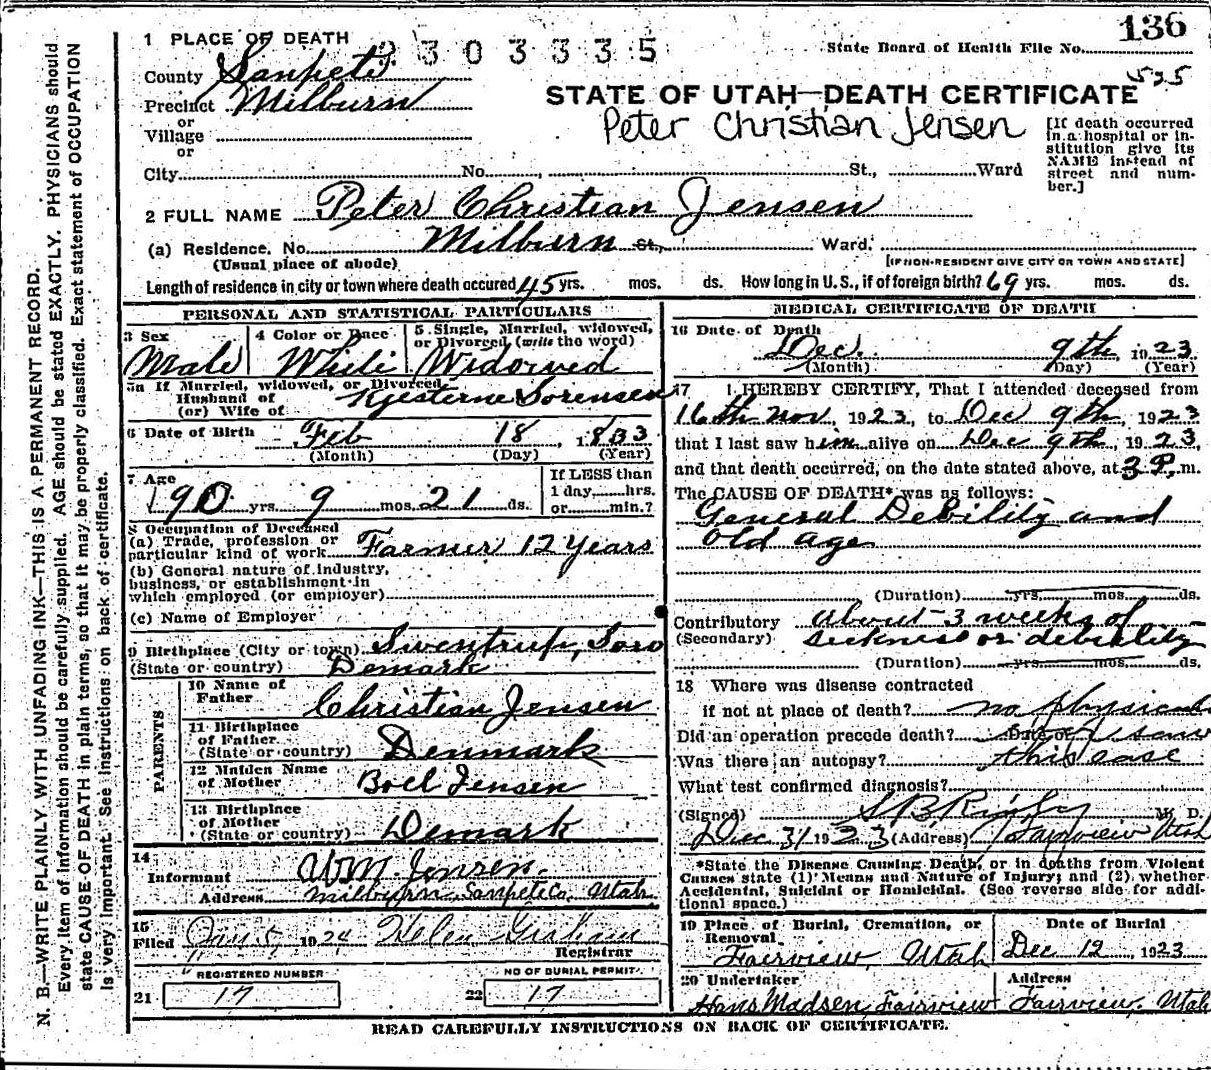 136
1 PLACE OF DEATH 2303335 State Board of Health File No.
County Sanpete 525
Precinct Milburn STATE OF UTAH—DEATH CERTIFICATE
or
Village Peter Christian Jensen
or
[If death occurred in a hospital or institution give its NAME instead of street and number.]
City No. , St., Ward
2 FULL NAME Peter Christian Jensen
(a) Residence. No. Milburn St., Ward.
(Usual place of abode) [IF NON-RESIDENT GIVE CITY OR TOWN AND STATE]
Length of residence in city or town where death occured 45 yrs. mos. ds. How long in U.S., if of foreign birth? 69 yrs. mos. ds.
PERSONAL AND STATISTICAL PARTICULARS
3 Sex
Male
4 Color or Race
White
5 Single, Married, widowed, or Divorced (write the word)
Widowed
5a If Married, widowed, or Divorced
Husband of
(or) Wife of Kjesterne Sorensen
6 Date of Birth Feb 18, 1833
(Month) (Day) (Year)
7 Age
90 yrs. 9 mos. 21 ds.
If LESS than
1 day, hrs.
or min.?
8 Occupation of Deceased
(a) Trade, profession or
particular kind of work Farmer 12 Years
(b) General nature of industry,
business, or establishment in
which employed (or employer)
(c) Name of Employer
9 Birthplace (City or town)
(State or country) Demark
PARENTS
10 Name of
Father Christian Jensen
11 Birthplace
of Father
(State or country) Denmark
12 Maiden Name
of Mother Boel Jensen
13 Birthplace
of Mother
(State or country) Demark
14
Informant Wm. Jensen.
Address Milburn, Sanpete Co, Utah
15
Filed Jan 5, 1924 Helen Graham
Registrar
REGISTERED NUMBER
21 17
NO OF BURIAL PERMIT
22 17
MEDICAL CERTIFICATE OF DEATH
16 Date of Death
Dec. 9th 1923
(Month) (Day) (Year)
17 I HEREBY CERTIFY, That I attended deceased from
16th Nov, 1923, to Dec 9th, 1923
that I last saw him alive on Dec 9th, 1923,
and that death occurred, on the date stated above, at 3 P. m.
The CAUSE OF DEATH* was as follows:
General Debility and
old age
(Duration) yrs. mos. ds.
Contributory about 3 weeks of
(Secondary) sickness or debility
(Duration) yrs. mos. ds.
18 Where was disease contracted
if not at place of death? no physician
Did an operation precede death? Date of saw
Was there an autopsy? this case
What test confirmed diagnosis?
(Signed) M. D.
Dec 31 1923 (Address) Fairview Utah
*State the Disease Causing Death, or in deaths from Violent
Causes state (1) Means and Nature of Injury; and (2) whether
Accidental, Suicidal or Homicidal. (See reverse side for addi-
tional space.)
19 Place of Burial, Cremation, or
Removal
Fairview, Utah
Date of Burial
Dec 12, 1923
20 Undertaker
Hans Madsen, Fairview
Address
Fairview, Utah
READ CAREFULLY INSTRUCTIONS ON BACK OF CERTIFICATE.
N. B.—WRITE PLAINLY WITH UNFADING INK—THIS IS A PERMANENT RECORD.
Every item of information should be carefully supplied. AGE should be stated EXACTLY. PHYSICIANS should
state CAUSE OF DEATH in plain terms, so that it may be properly classified. Exact statement of OCCUPATION
is very important. See instructions on back of certificate.